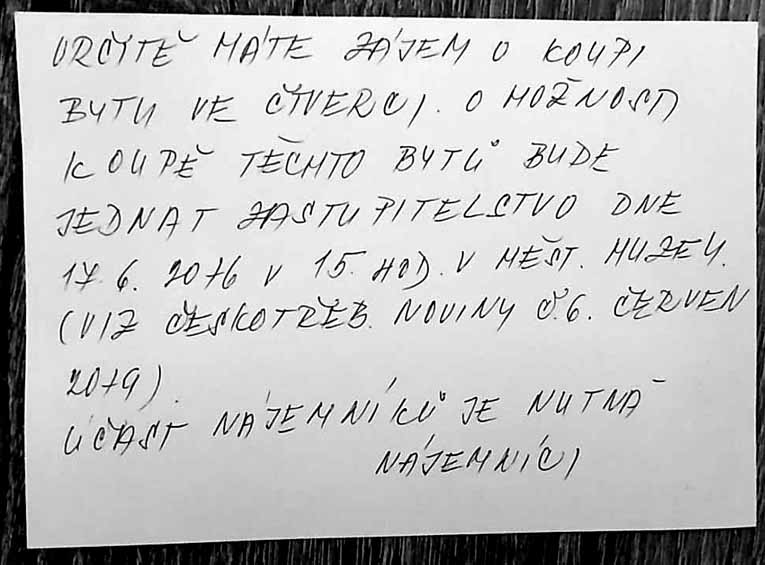 URČITĚ MÁTE ZÁJEM O KOUPI
BYTU VE ČTVERCI. O MOŽNOSTI
KOUPĚ TĚCHTO BYTŮ BUDE
JEDNAT ZASTUPITELSTVO DNE
17. 6. 2016 V 15. HOD. V MĚST. MUZEU.
(VIZ ČESKOTŘEB. NOVINY Č. 6. ČERVEN
2019).
ÚČAST NÁJEMNÍKŮ JE NUTNÁ
NÁJEMNÍCI